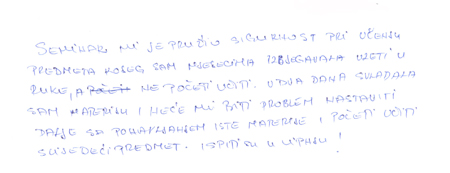 SEMINAR MI JE PRUŽIO SIGURNOST PRI UČENJU
PREDMETA KOJEG SAM MJESECIMA IZBJEGAVALA UZETI U
RUKE, A POČETI NE POČETI UČITI. U DVA DANA SVLADALA
SAM MATERIJU I NEĆE MI BITI PROBLEM NASTAVITI
DALJE SA PONAVLJANJEM ISTE MATERIJE I POČETI UČITI
SLIJEDEĆI PREDMET. ISPITI SU U LIPNJU!